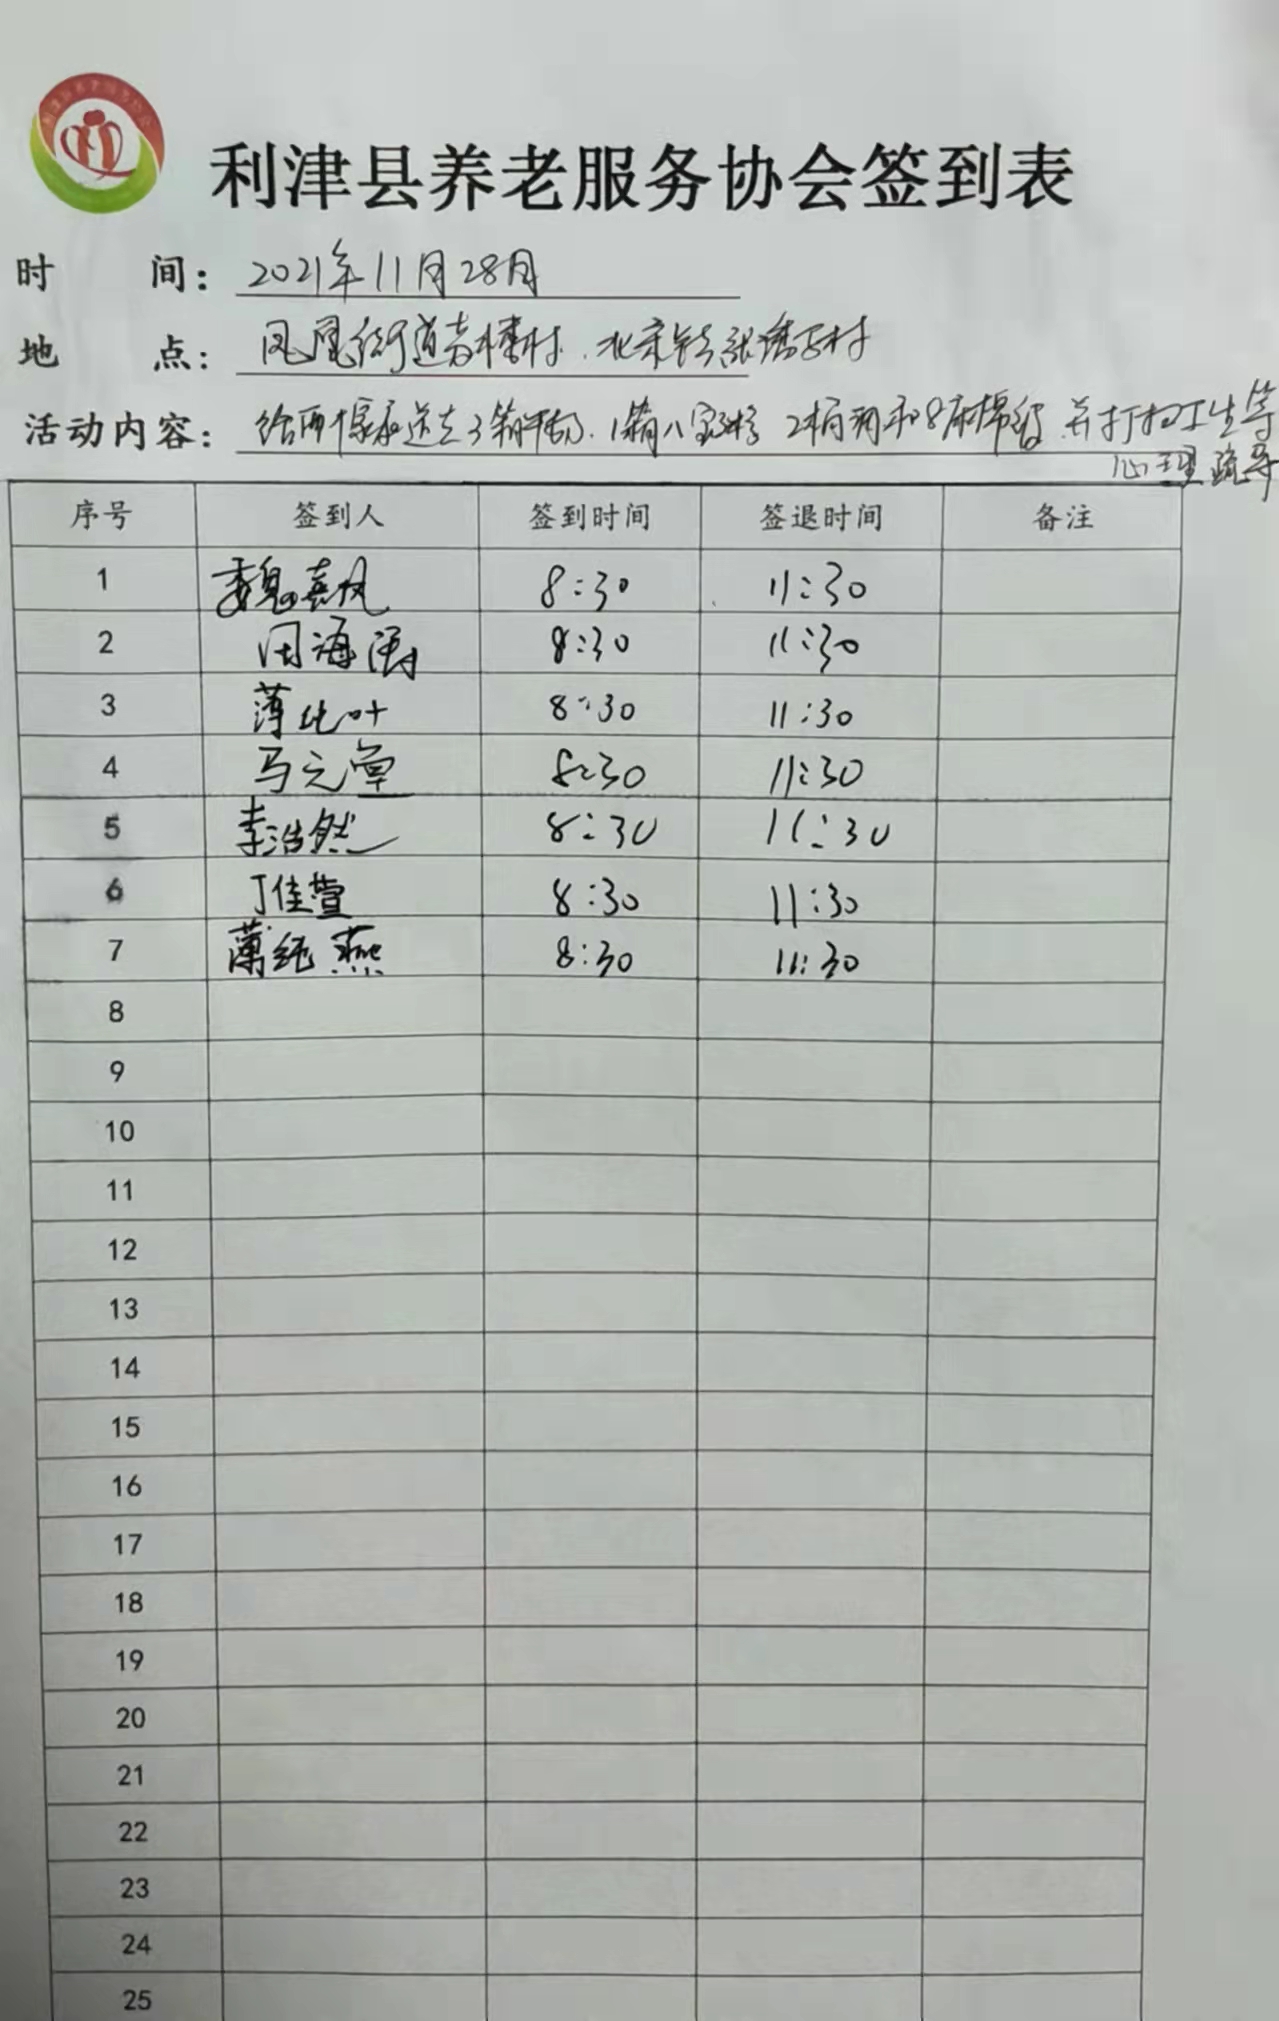 利津县养老服务协会签到表
时 间: 2021年11月28日
地 点: 凤凰街道 村、北宋镇 村
活动内容: 给两 家庭送去3箱牛奶、1箱八宝粥 2桶 和8床棉被 并打扫卫生等
心理疏导
序号 签到人 签到时间 签退时间 备注
1 魏喜凤 8:30 11:30
2 周海涛 8:30 11:30
3 薄 叶 8:30 11:30
4 马元 8:30 11:30
5 李浩然 8:30 11:30
6 丁佳萱 8:30 11:30
7 薄纯燕 8:30 11:30
8
9
10
11
12
13
14
15
16
17
18
19
20
21
22
23
24
25